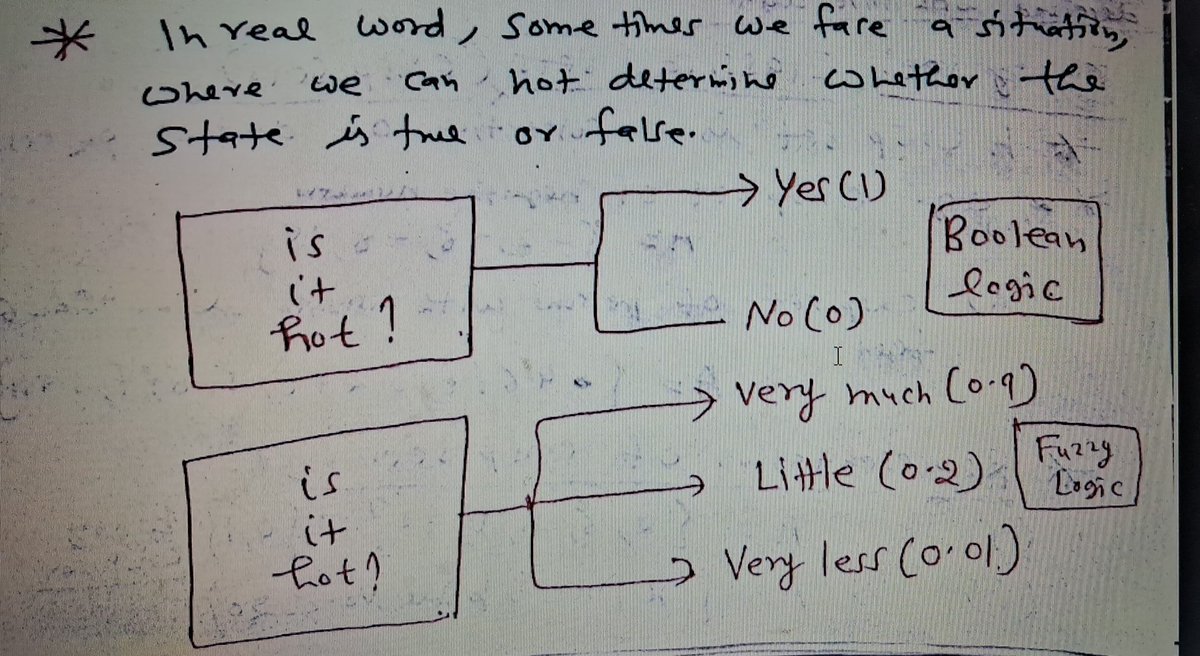 * In real word, Some times we face a situation,
where we can not determine whether the
State is true or false.
is
it
hot?
Yes (1)
No (0)
Boolean
logic
is
it
hot?
Very much (0.9)
Little (0.2)
Very less (0.01)
Fuzzy
Logic